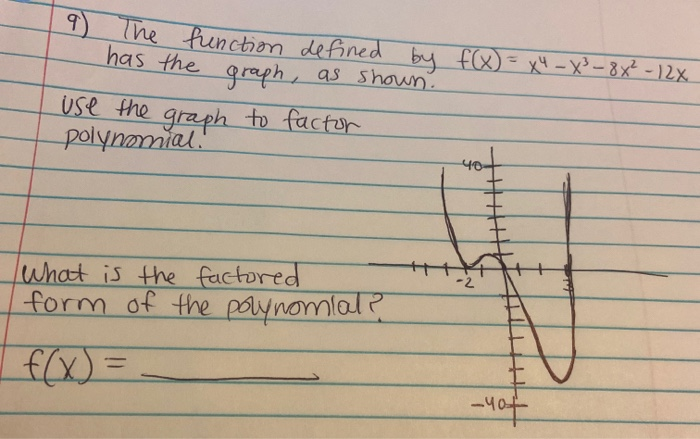 9) The function defined by f(x) = x⁴ - x³ - 8x² - 12x
has the graph, as shown.
use the graph to factor
polynomial.
40
-2
3
What is the factored
form of the polynomial?
f(x) = ________
-40